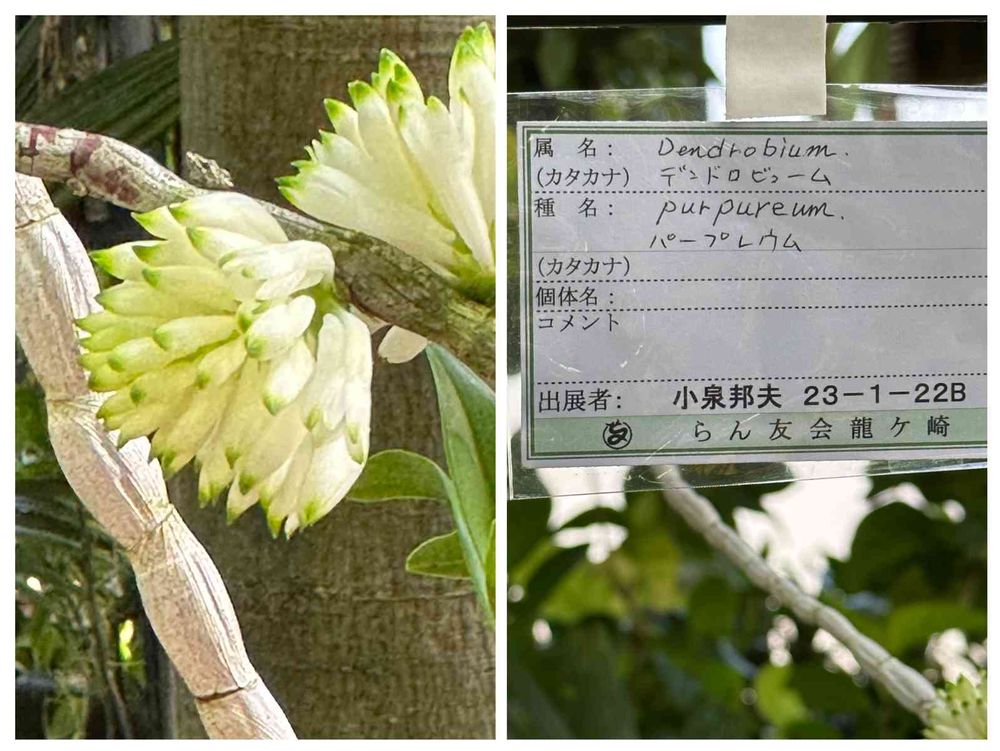 属 名： Dendrobium.
(カタカナ) デンドロビューム
種 名： purpureum.
パープレウム
(カタカナ)
個体名：
コメント
出展者： 小泉邦夫 23-1-22B
らん友会龍ケ崎